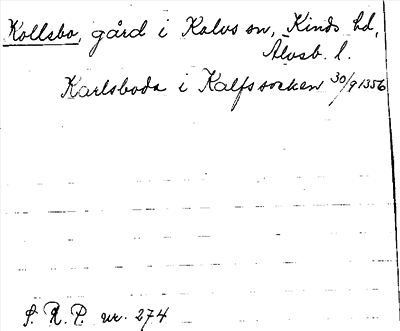 Kollsbo, gård i Kalvs sn, Kinds hd,
Älvsb. l.
Karlsboda i Kalfs socken 30/9 1356
S. R. P. nr. 274